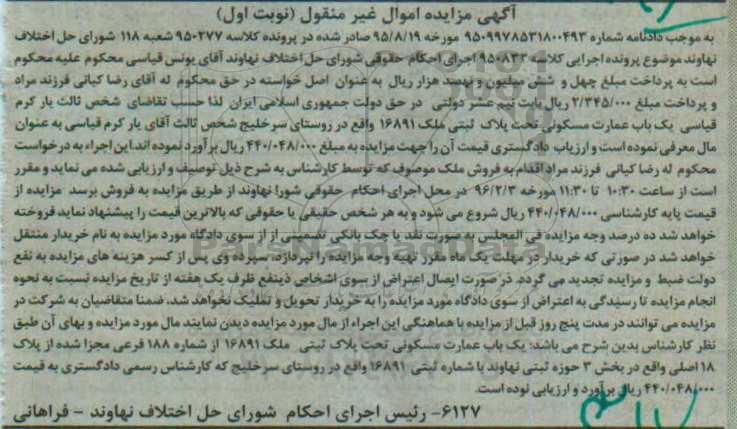 آگهی مزایده اموال غیر منقول (نوبت اول)
به موجب دادنامه شماره ۹۵۰۹۹۷۸۵۳۱۸۰۰۴۹۳ مورخه ۹۵/۸/۱۹ صادر شده در پرونده کلاسه ۹۵۰۲۷۷ شعبه ۱۱۸ شورای حل اختلاف
نهاوند موضوع پرونده اجرایی کلاسه ۹۵۰۸۳۳ اجرای احکام حقوقی شورای حل اختلاف نهاوند آقای یونس قیاسی محکوم علیه محکوم
است به پرداخت مبلغ چهل و شش میلیون و نهصد هزار ریال به عنوان اصل خواسته در حق محکوم له آقای رضا کیانی فرزند مراد
و پرداخت مبلغ ۲/۳۴۵/۰۰۰ ریال بابت نیم عشر دولتی در حق دولت جمهوری اسلامی ایران لذا حسب تقاضای شخص ثالث یار کرم
قیاسی یک باب عمارت مسکونی تحت پلاک ثبتی ملک ۱۶۸۹۱ واقع در روستای سرخلیج شخص ثالث آقای یار کرم قیاسی به عنوان
مال معرفی نموده است و ارزیاب دادگستری قیمت آن را جهت مزایده به مبلغ ۴۴۰/۰۴۸/۰۰۰ ریال برآورد نموده اند.این اجراء به درخواست
محکوم له رضا کیانی فرزند مراد اقدام به فروش ملک موصوف که توسط کارشناس به شرح ذیل توصیف و ارزیابی شده می نماید و مقرر
است از ساعت ۱۰:۳۰ تا ۱۱:۳۰ مورخه ۹۶/۲/۳ در محل اجرای احکام حقوقی شورا نهاوند از طریق مزایده به فروش برسد مزایده از
قیمت پایه کارشناسی ۴۴۰/۰۴۸/۰۰۰ ریال شروع می شود و به هر شخص حقیقی یا حقوقی که بالاترین قیمت را پیشنهاد نماید فروخته
خواهد شد ده درصد وجه مزایده فی المجلس به صورت نقد یا چک بانکی تضمینی از از سوی دادگاه مورد مزایده به نام خریدار منتقل
خواهد شد در صورتی که خریدار در مهلت یک ماه مقرر تهیه وجه مزایده را نپردازد، سپرده وی پس از کسر هزینه های مزایده به نفع
دولت ضبط و مزایده تجدید می گردد. در صورت ایصال اعتراض از سوی اشخاص ذینفع ظرف یک هفته از تاریخ مزایده نسبت به نحوه
انجام مزایده تا رسیدگی به اعتراض از سوی دادگاه مورد مزایده را به خریدار تحویل و تملیک نخواهد شد، ضمنا متقاضیان به شرکت در
مزایده می توانند در مدت پنج روز قبل از مزایده با هماهنگی این اجراء از مال مورد مزایده دیدن نمایند مال مورد مزایده و بهای آن طبق
نظر کارشناس بدین شرح می باشد: یک باب عمارت مسکونی تحت پلاک ثبتی ملک ۱۶۸۹۱ از شماره ۱۸۸ فرعی مجزا شده از پلاک
۱۸ اصلی واقع در بخش ۳ حوزه ثبتی نهاوند با شماره ثبتی ۱۶۸۹۱ واقع در روستای سرخلیج که کارشناس رسمی دادگستری به قیمت
۴۴۰/۰۴۸/۰۰۰ ریال برآورد و ارزیابی نوده است.
۶۱۲۷- رئیس اجرای احکام شورای حل اختلاف نهاوند - فراهانی